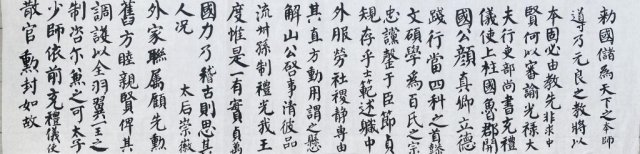 勅国儲為天下之本師
導乃元良之教將以
本固必由教先非求中
賢何以審諭光禄大
夫行吏部尚書充禮
儀使上柱國魯郡開
國公顔真卿立德
踐行當四科之首懿
文碩學為百氏之宗
忠讜罄于臣節貞
規存乎士範述職中
外服勞社稷静專由
其直方動用謂之懸
解山公啓事清彼品
流叔孫制禮光我王
度惟是一有實貞萬
國力乃稽古則思其
人况　太后崇徽
外家聯属顧先勲
舊方睦親賢俾其
調護以全羽翼一王之
制咨尔兼之可太子
少師依前充禮儀使
散官　勲封如故